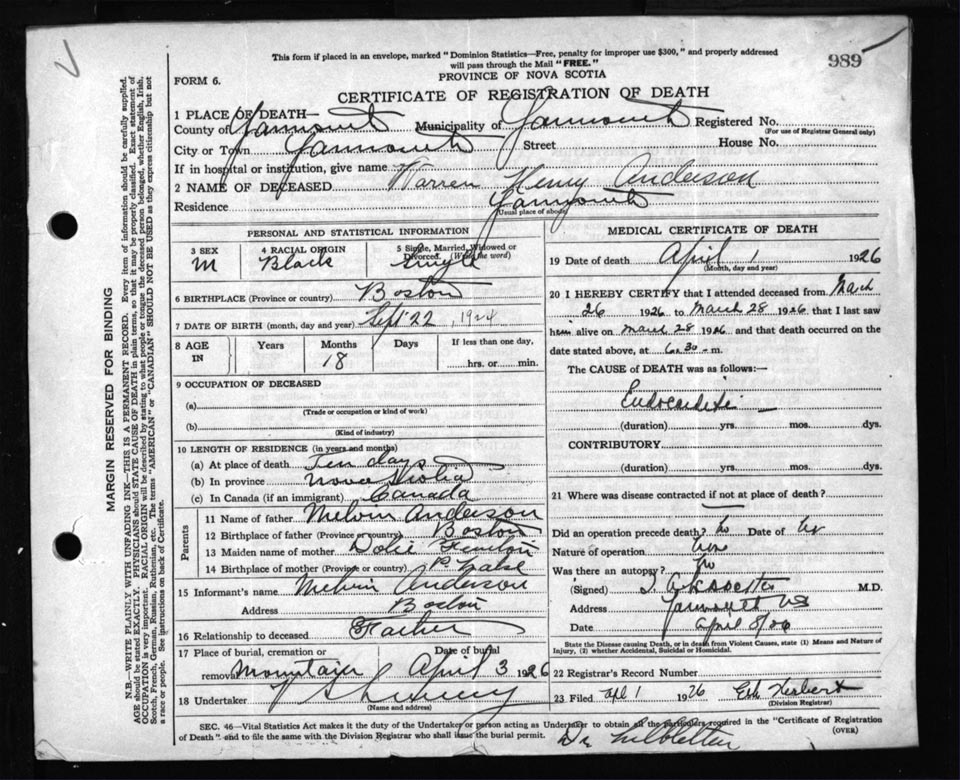 This form if placed in an envelope, marked "Dominion Statistics—Free, penalty for improper use $300," and properly addressed
will pass through the Mail "FREE."
989
PROVINCE OF NOVA SCOTIA
FORM 6.
CERTIFICATE OF REGISTRATION OF DEATH
1 PLACE OF DEATH—
County of Yarmouth Municipality of Yarmouth Registered No.
(For use of Registrar General only)
City or Town Yarmouth Street House No.
If in hospital or institution, give name
2 NAME OF DECEASED Warren Henry Anderson
Residence Yarmouth
(Usual place of abode)
PERSONAL AND STATISTICAL INFORMATION
3 SEX
M
4 RACIAL ORIGIN
Black
5 Single, Married, Widowed or
Divorced. (Write the word)
Single
6 BIRTHPLACE (Province or country) Boston
7 DATE OF BIRTH (month, day and year) Sept 22, 1924
8 AGE IN Years Months 18 Days If less than one day,
hrs. or min.
9 OCCUPATION OF DECEASED
(a)
(Trade or occupation or kind of work)
(b)
(Kind of industry)
10 LENGTH OF RESIDENCE (in years and months)
(a) At place of death Ten days
(b) In province Nova Scotia
(c) In Canada (if an immigrant) Canada
Parents
11 Name of father Melvin Anderson
12 Birthplace of father (Province or country) Boston
13 Maiden name of mother
14 Birthplace of mother (Province or country)
15 Informant's name Melvin Anderson
Address Boston
16 Relationship to deceased Father
17 Place of burial, cremation or
removal Mountain
Date of burial
April 3 1926
18 Undertaker
(Name and address)
MEDICAL CERTIFICATE OF DEATH
19 Date of death April 1 1926
(Month, day and year)
20 I HEREBY CERTIFY that I attended deceased from March
26 1926 to March 28 1926 that I last saw
him alive on March 28 1926 and that death occurred on the
date stated above, at 6.30 m.
The CAUSE of DEATH was as follows:—
Endocarditis
(duration) yrs. mos. dys.
CONTRIBUTORY
(duration) yrs. mos. dys.
21 Where was disease contracted if not at place of death?
Did an operation precede death? no Date of
Nature of operation
Was there an autopsy? no
(Signed) M.D.
Address Yarmouth NS
Date April 8/26
State the Disease causing Death, or in death from Violent Causes, state (1) Means and Nature of
Injury, (2) whether Accidental, Suicidal or Homicidal.
22 Registrar's Record Number
23 Filed Apl 1 1926 Herbert
(Division Registrar)
SEC. 46—Vital Statistics Act makes it the duty of the Undertaker or person acting as Undertaker to obtain all the particulars required in the "Certificate of Registration
of Death" and to file the same with the Division Registrar who shall issue the burial permit.
(OVER)
Dr
MARGIN RESERVED FOR BINDING
N.B.—WRITE PLAINLY WITH UNFADING INK—THIS IS A PERMANENT RECORD. Every item of information should be carefully supplied.
AGE should be stated EXACTLY. PHYSICIANS should STATE CAUSE OF DEATH in plain terms, so that it may be properly classified. Exact statement of
OCCUPATION is very important. RACIAL ORIGIN will be described by stating to what people or tongue the deceased person belonged, whether English, Irish,
Scotch, French, German, Russian, Ruthenian, etc. The terms "AMERICAN" or "CANADIAN" SHOULD NOT BE USED as they express citizenship but not
a race or people. See instructions on back of Certificate.